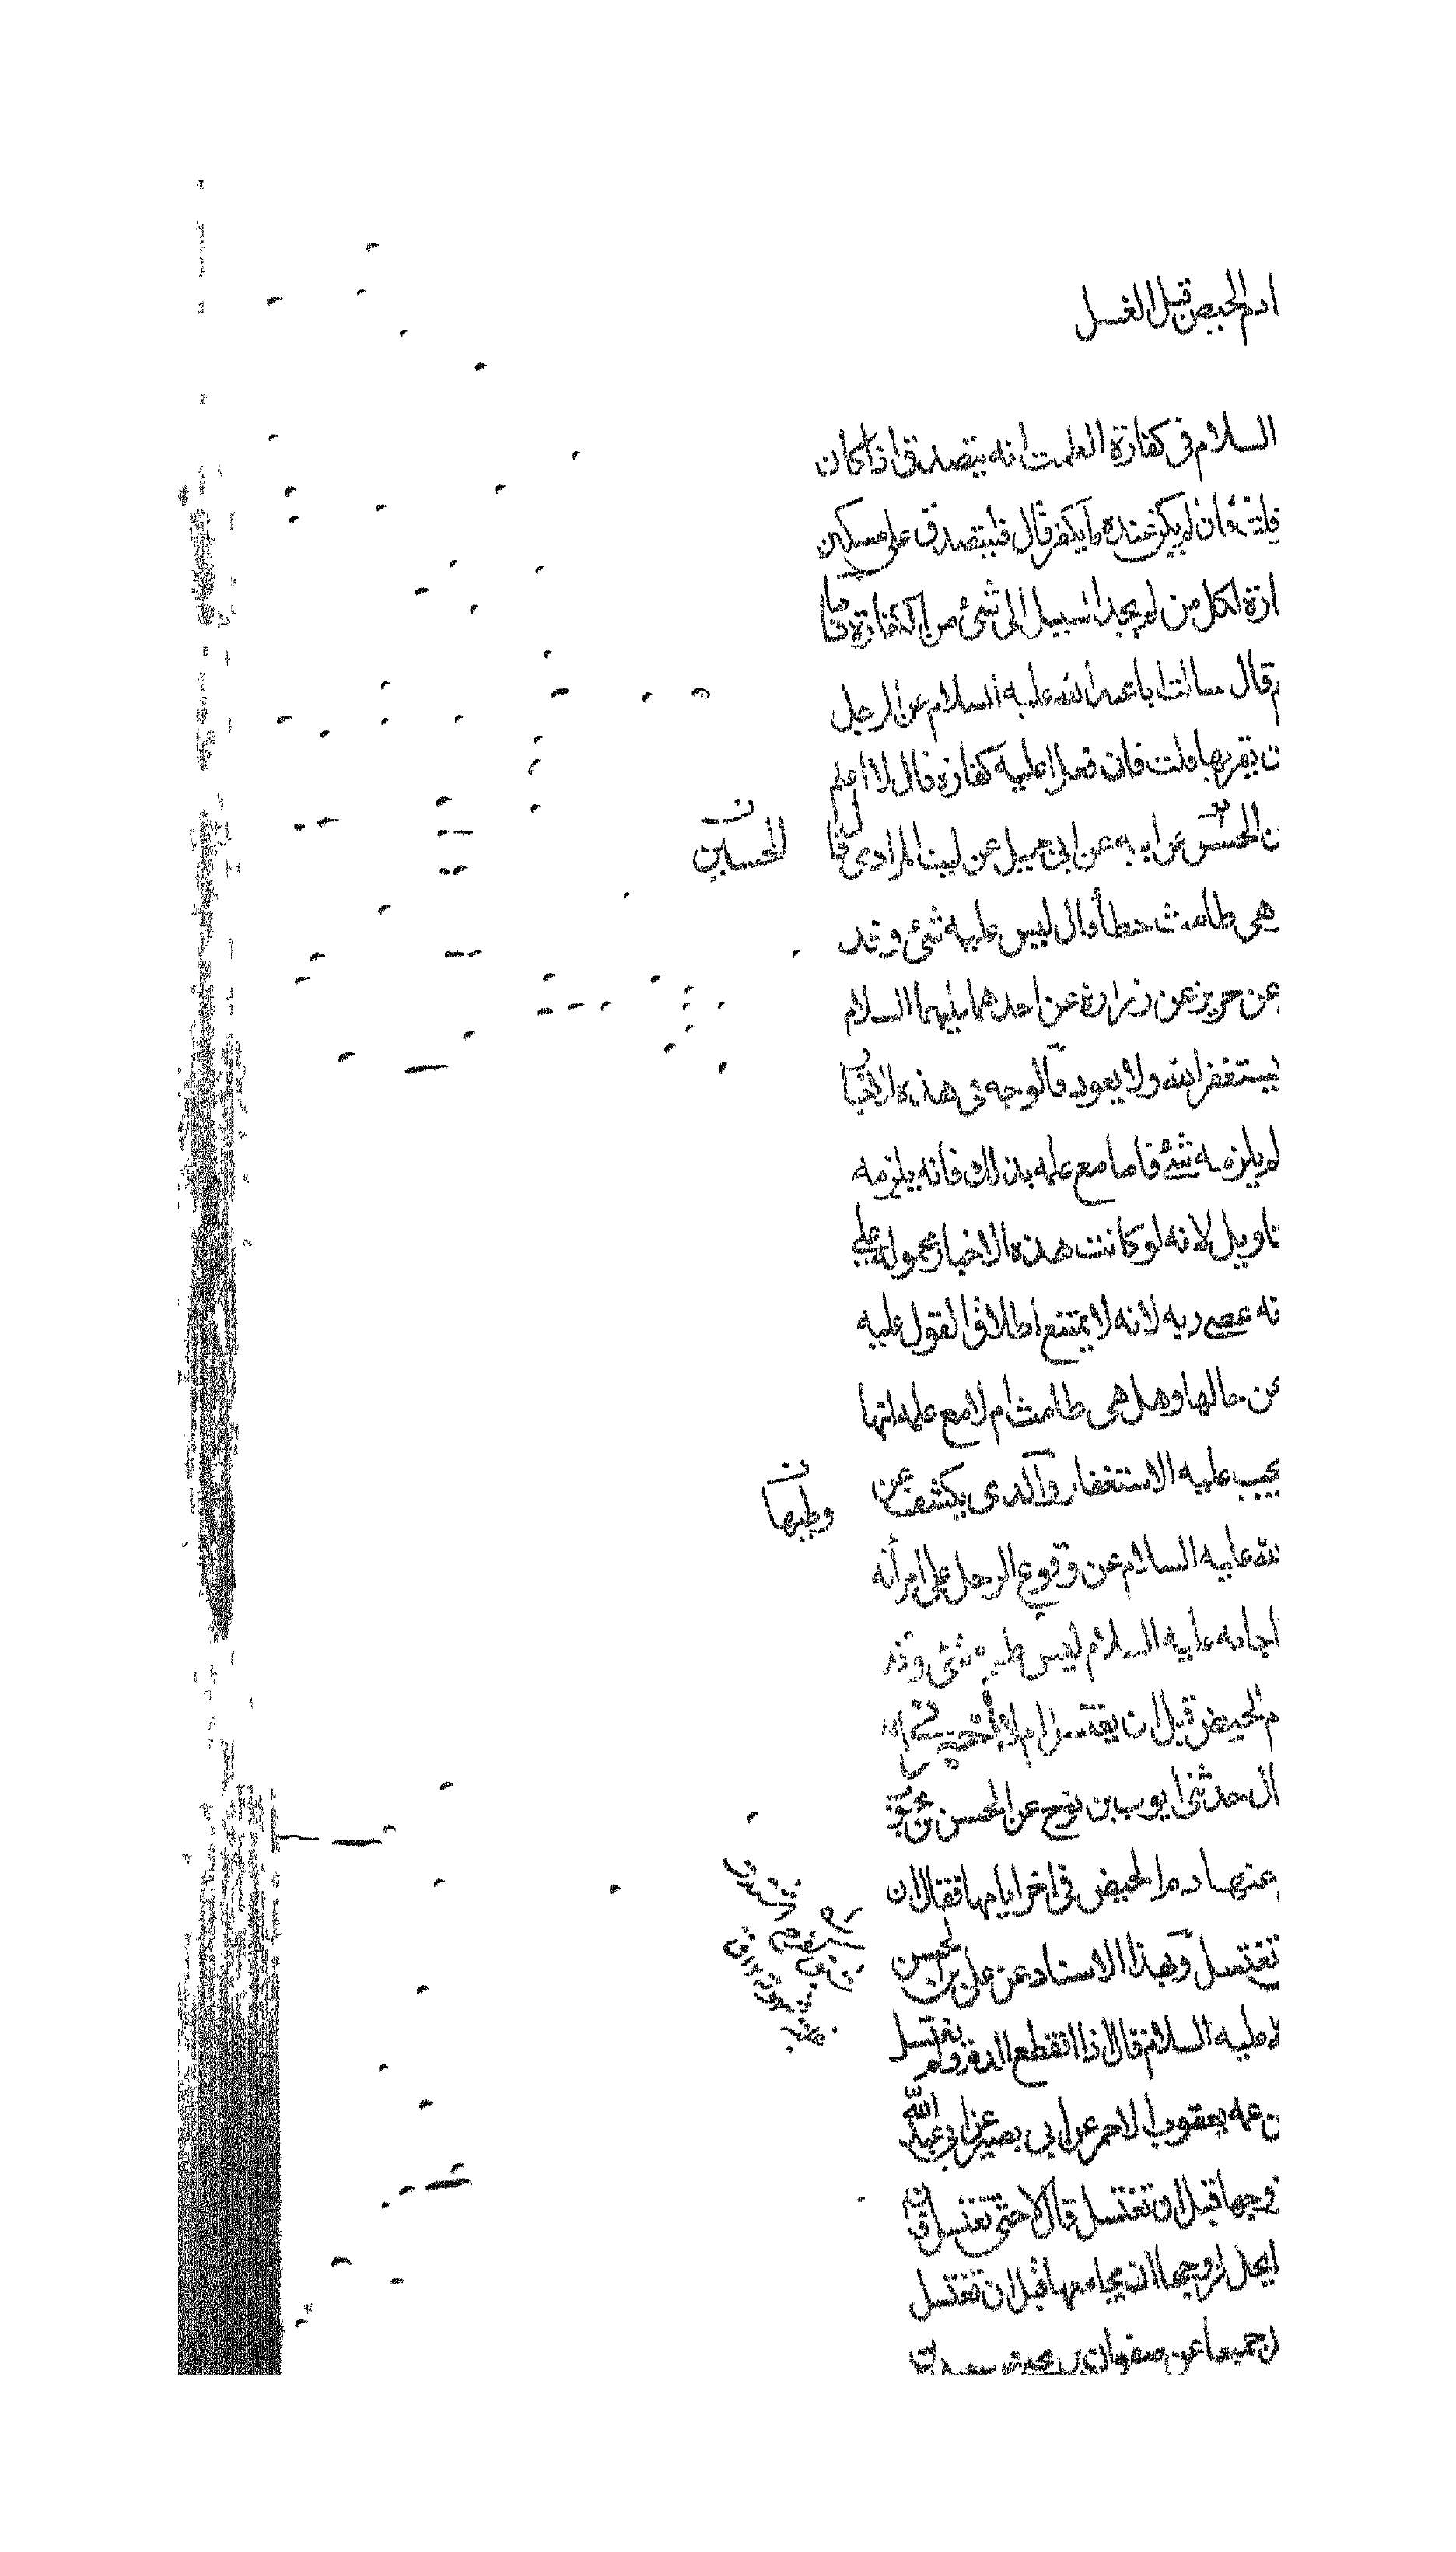 دم الحيض قبل الغسل
السلام في كفارة الطمث انه يتصدق اذا كان
قلت فان لم يكن عنده ما يكفر قال فليتصدق على مسكين
ارة لكل من لم يجد السبيل الى شئ من الكفارة فاما
قال سالت ابا عبد الله عليه السلام عن الرجل
ن يقربها قلت فان فعل اعليه كفارة قال لا اعلم
ن الحسن عن ابيه عن ابي جميل عن ليث المرادي قال
الحسين
هي طامث خطأ قال ليس عليه شئ وقد
عن حريز عن زرارة عن احدهما عليهما السلام
يستغفر الله ولا يعود فالوجه في هذه الاخبار
لم يلزمه شئ فاما مع علمه بذلك فانه يلزمه
تاويل لانه لو كانت هذه الاخبار محمولة على
نه عصى ربه لانه لا يمتنع اطلاق القول عليه
عن حالها وهل هي طامث ام لا مع علمه انها
يجب عليه الاستغفار والذي يكشف عن
وطيها
لله عليه السلام عن وقوع الرجل على امرأته
اجابه عليه السلام ليس عليه شئ وقد
م الحيض قبل ان يغتسل ام لا
ال حدثني ايوب بن نوح عن الحسن بن
عنها دم الحيض في اخر ايامها فقال ان
تغتسل وبهذا الاسناد عن علي بن الحسن
عليه السلام قال اذا انقطع الدم ولم تغتسل
ن عمه يعقوب الاحمر عن ابي بصير عن ابي عبد الله
زوجها قبل ان تغتسل قال لا حتى تغتسل قال
ايحل لزوجها ان يجامعها قبل ان تغتسل
ن جميعا عن صفوان بن يحيى عن سعيد بن